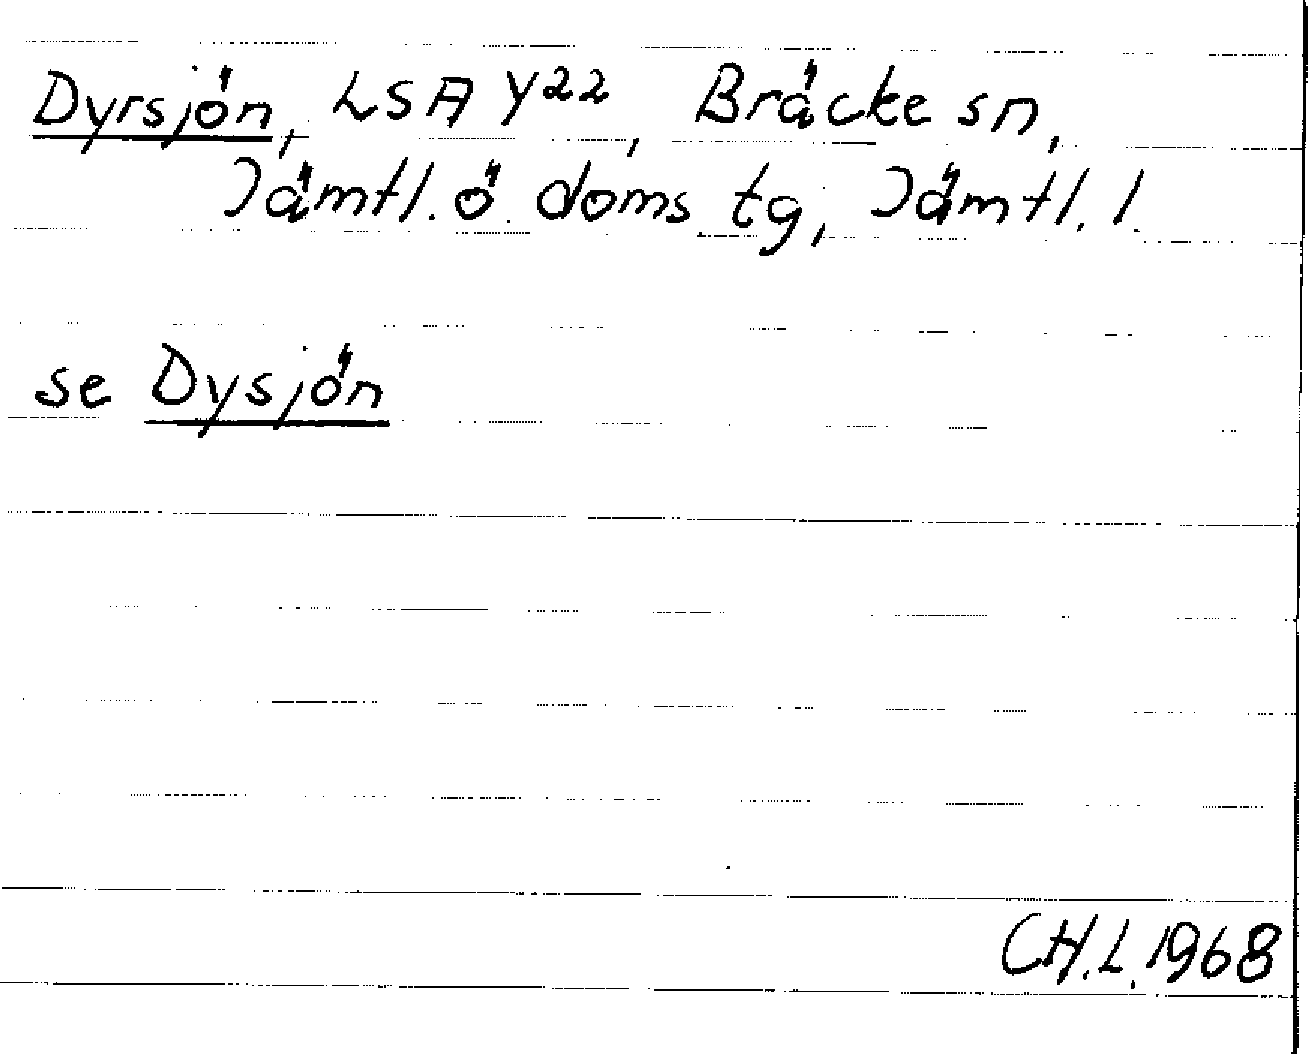 Dyrsjön, LSA Y22, Bräcke sn,
Jämtl. ö. doms. tg, Jämtl. l.
se Dysjön
CH.L. 1968